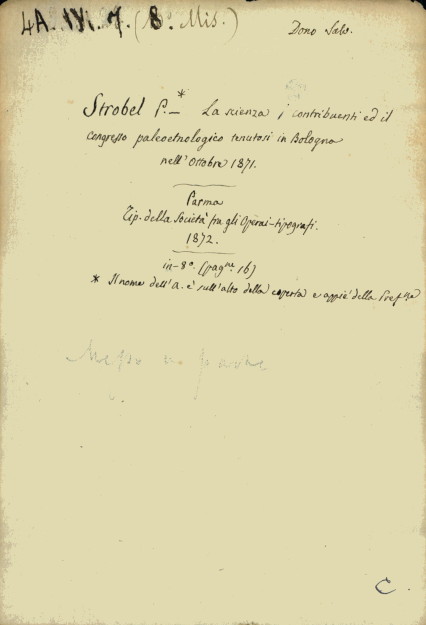 4A. IVI. 7. (8° Mis.)
Dono Salv.
*
Strobel P. — La scienza i contribuenti ed il
congresso paleoetnologico tenutosi in Bologna
nell' Ottobre 1871.
Parma
Tip. della Società fra gli Operai-tipografi.
1872.
in-8° (pagne 16)
* Il nome dell' A. è sull' alto della coperta e appiè della Prefne
C.